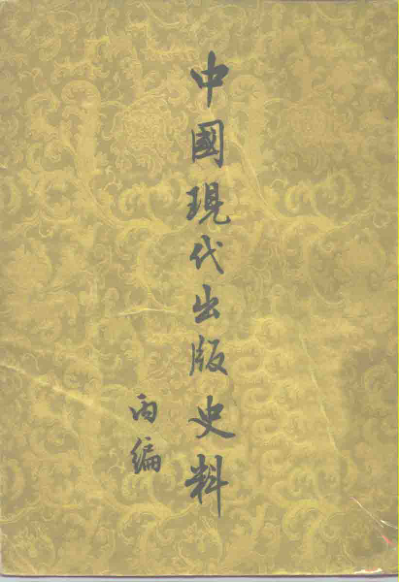 中國現代出版史料
丙编